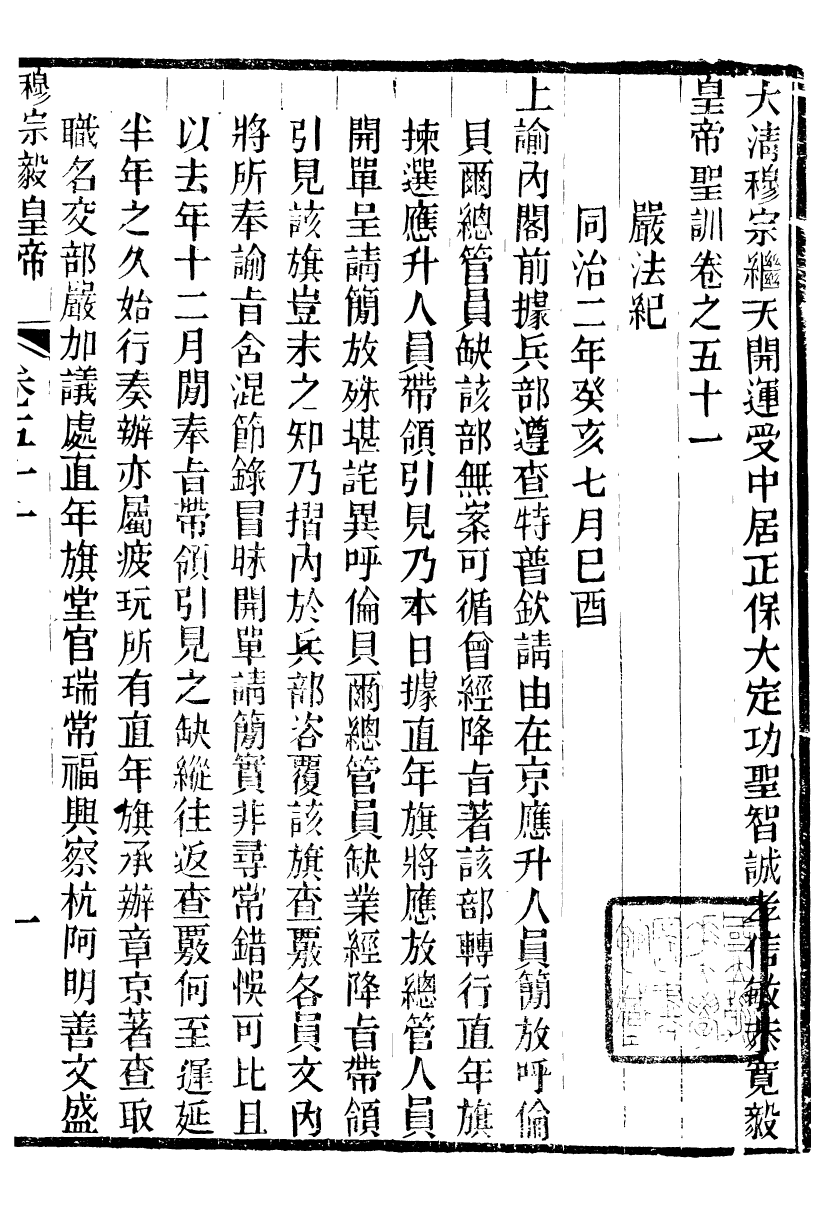 大清穆宗繼天開運受中居正保大定功聖智誠孝信敏恭寬毅
皇帝聖訓卷之五十一
嚴法紀
同治二年癸亥七月巳酉
上諭內閣前據兵部遵查特普欽請由在京應升人員簡放呼倫
貝爾總管員缺該部無案可循曾經降旨著該部轉行直年旗
揀選應升人員帶領引見乃本日據直年旗將應放總管人員
開單呈請簡放殊堪詫異呼倫貝爾總管員缺業經降旨帶領
引見該旗豈未之知乃摺內於兵部咨覆該旗查覈各員文內
將所奉諭旨含混節錄冒昧開單請簡實非尋常錯悞可比且
以去年十二月閒奉旨帶領引見之缺縱往返查覈何至遲延
半年之久始行奏辦亦屬疲玩所有直年旗承辦章京著查取
職名交部嚴加議處直年旗堂官瑞常福興察杭阿明善文盛
穆宗毅皇帝 卷五十一 一